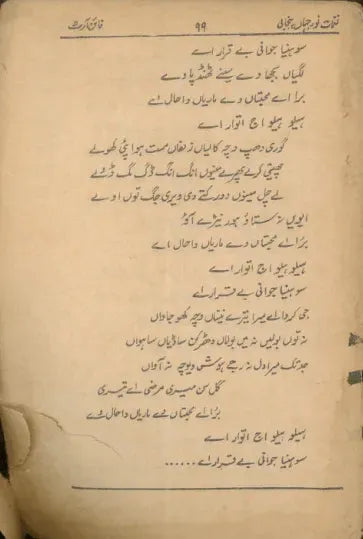 نغمات نور جہاں پنجابی ۹۹ فائن آرٹ
سوہنیا جوانی بے قرار اے
لگیاں بجھا دے سینے ٹھنڈ پا دے
برا اے محبتاں دے ماریاں دا حال اے
ہیلو ہیلو اج اتوار اے
گوری دھپ وچہ کالیاں زلفاں مست ہوا پئی کھولے
کرے میرے مینوں انگ انگ ڈگ مگ ڈولے
لے چل مینوں دور کتے دی ویری جگ توں اوہلے
ایویں نہ ستاؤ ہور نیڑے آؤ
برا اے محبتاں دے ماریاں دا حال اے
ہیلو ہیلو اج اتوار اے
سوہنیا جوانی بے قرار اے
جی کردا اے میرا تیرے نیناں وچہ کھو جاواں
نہ توں بولیں نہ میں بولاں دھڑکن ساڈیاں ساہواں
جد تک میرا دل نہ رجے ہوش وچہ نہ آواں
گل سن میری مرضی اے تیری
برا اے محبتاں دے ماریاں دا حال اے
ہیلو ہیلو اج اتوار اے
سوہنیا جوانی بے قرار اے ......